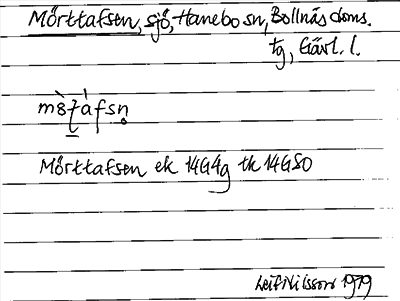 Mörttafsen, sjö, Hanebo sn, Bollnäs doms.
tg, Gävl. l.
Mörttafsen ek 14G4g tk 14GSO
Leif Nilsson 1979